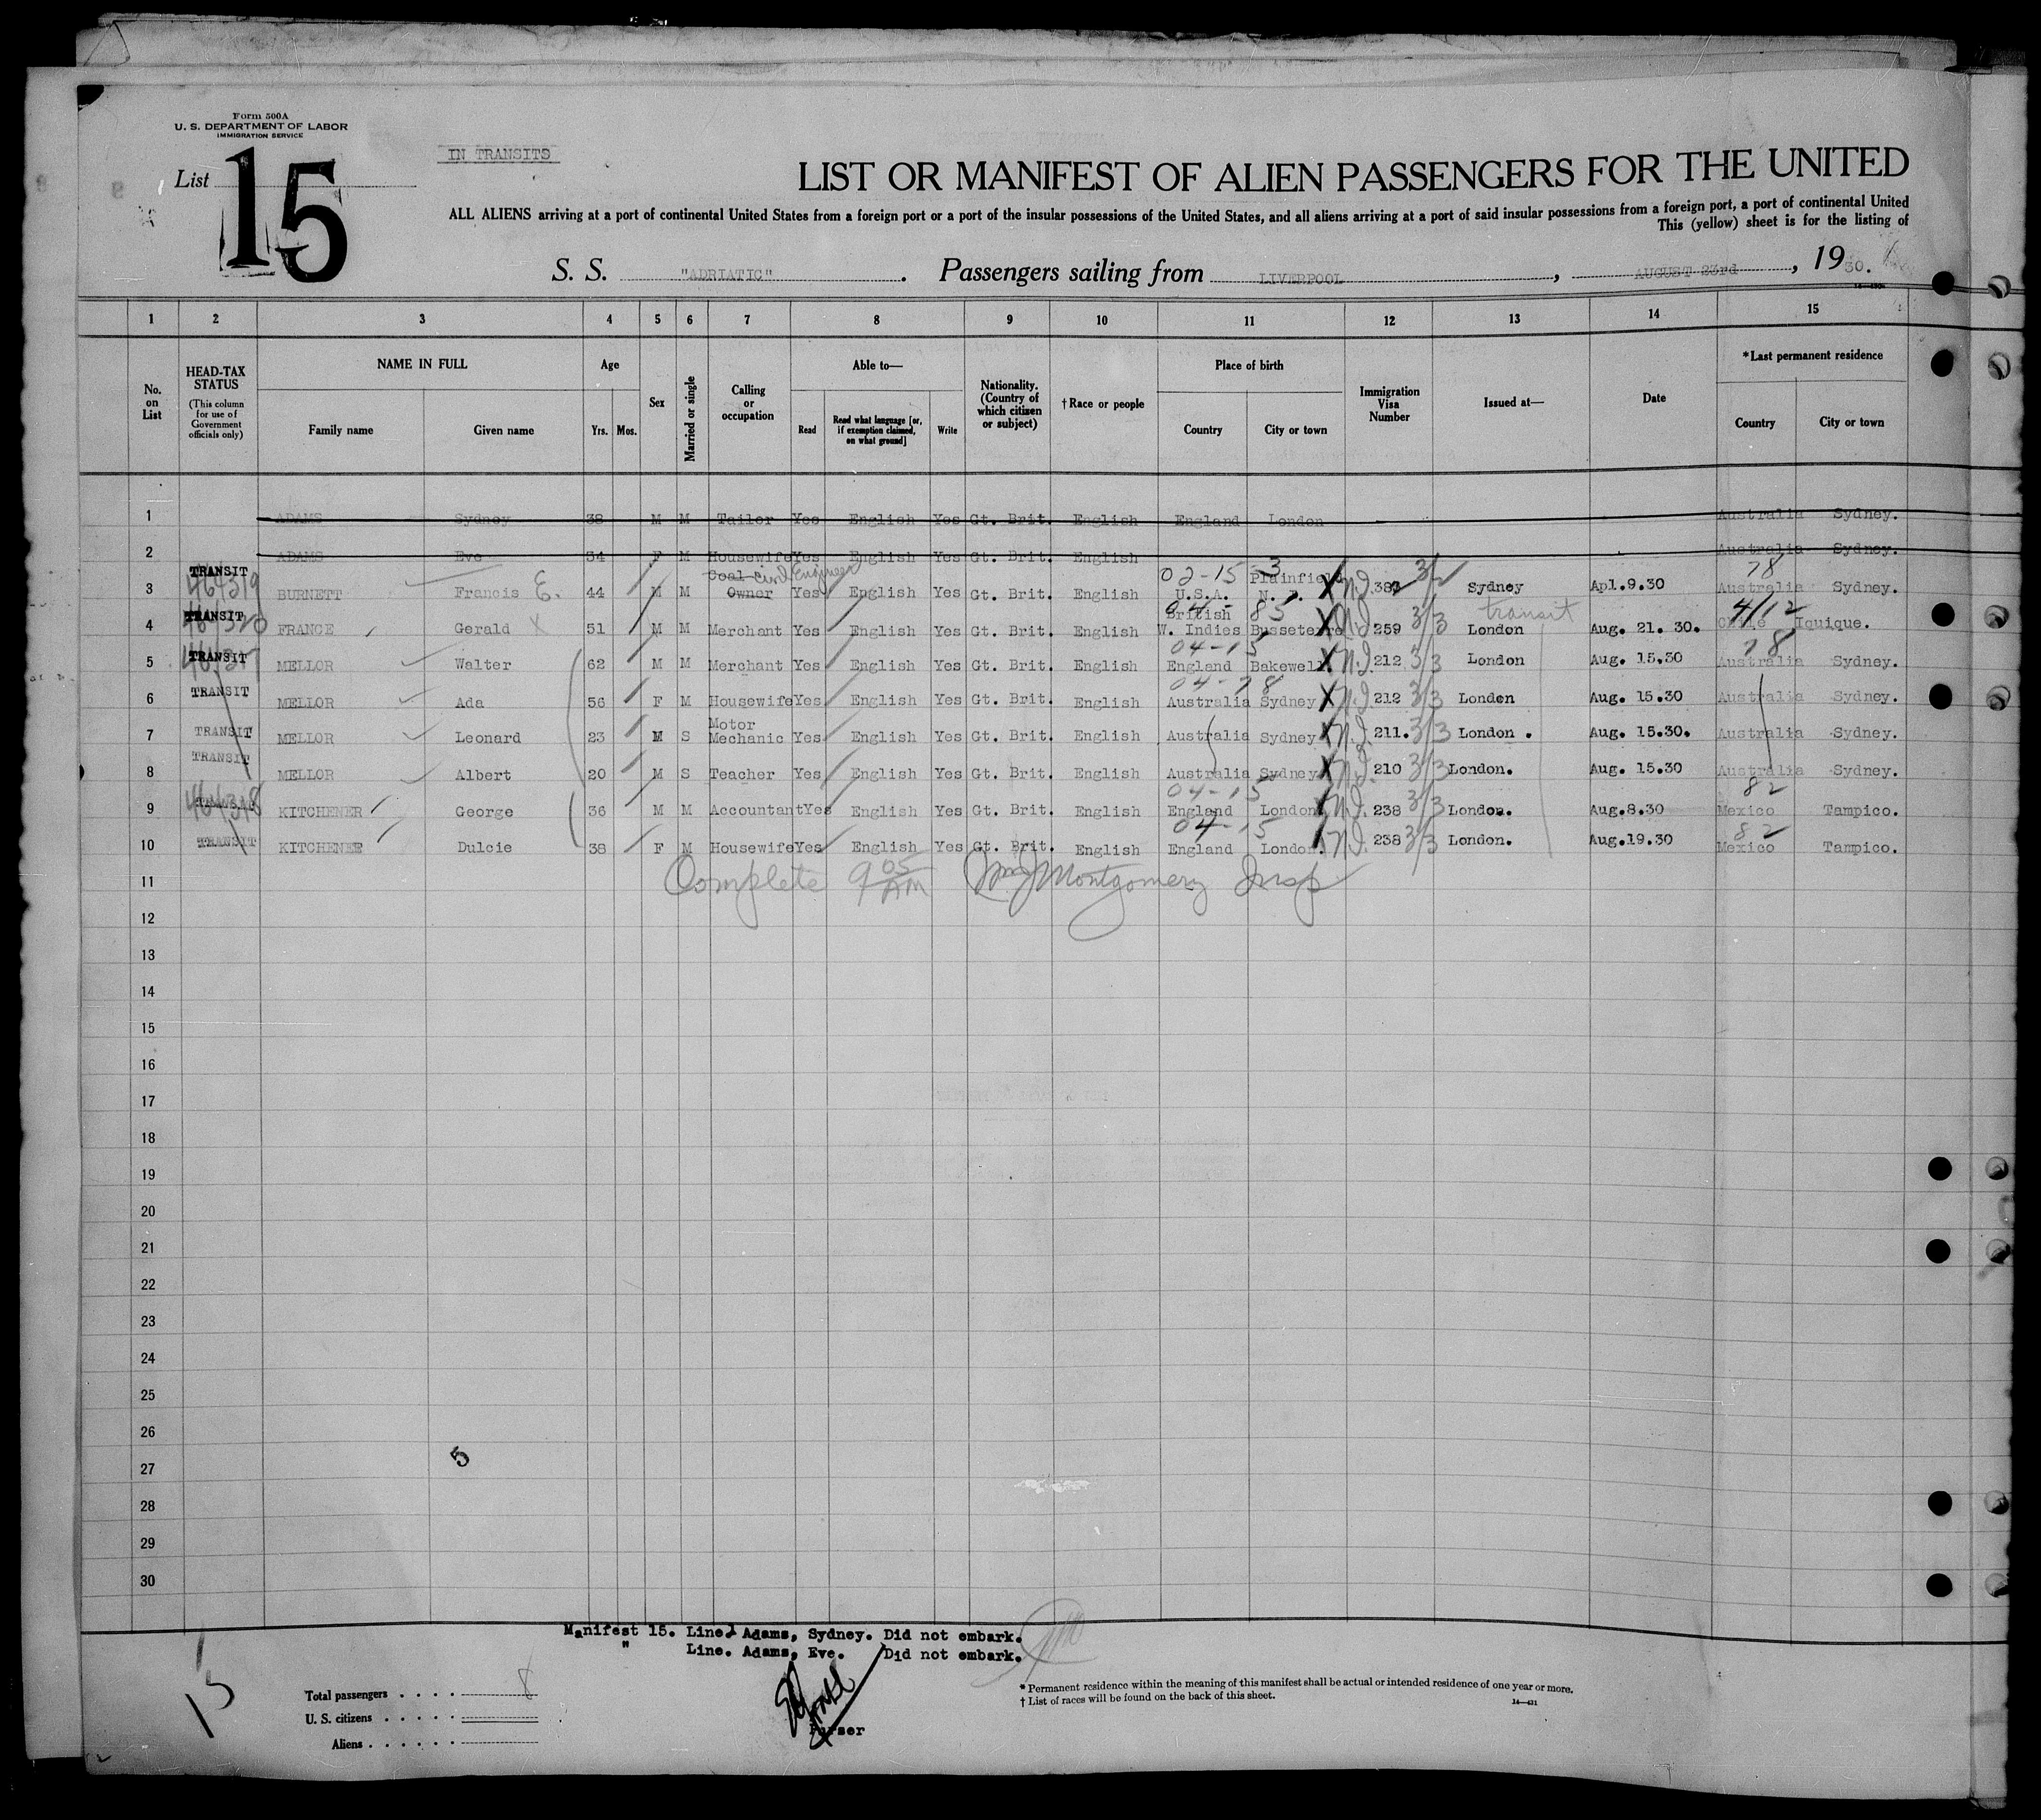 Form 500A
U. S. DEPARTMENT OF LABOR
IMMIGRATION SERVICE
List 15
IN TRANSITS
LIST OR MANIFEST OF ALIEN PASSENGERS FOR THE UNITED
ALL ALIENS arriving at a port of continental United States from a foreign port or a port of the insular possessions of the United States, and all aliens arriving at a port of said insular possessions from a foreign port, a port of continental United
This (yellow) sheet is for the listing of
S. S. "ADRIATIC". Passengers sailing from LIVERPOOL, AUGUST 23rd, 1930.
1 2 3 4 5 6 7 8 9 10 11 12 13 14 15
No. on List
HEAD-TAX STATUS (This column for use of Government officials only)
NAME IN FULL Family name Given name
Age Yrs. Mos.
Sex
Married or single
Calling or occupation
Able to— Read Read what language [or, if exemption claimed, on what ground] Write
Nationality. (Country of which citizen or subject)
† Race or people
Place of birth Country City or town
Immigration Visa Number
Issued at—
Date
*Last permanent residence Country City or town
1 ADAMS Sydney 38 M M Tailor Yes English Yes Gt. Brit. English England London Australia Sydney.
2 ADAMS Eve 34 F M Housewife Yes English Yes Gt. Brit. English Australia Sydney.
TRANSIT Coal Civil Engineer 02-15 3 Plainfield 3/2 78
3 464319 BURNETT Francis E. 44 M M Owner Yes English Yes Gt. Brit. English U.S.A. N. J. N.J. Sydney Apl.9.30 Australia Sydney.
TRANSIT 04- 85 British transit 4/12
4 FRANCE Gerald 51 M M Merchant Yes English Yes Gt. Brit. English W. Indies 259 3/3 London Aug. 21. 30. Chile Iquique.
TRANSIT 04-15 78
5 MELLOR Walter 62 M M Merchant Yes English Yes Gt. Brit. English England Bakewell 212 3/3 London Aug. 15.30 Australia Sydney.
TRANSIT 04-78
6 MELLOR Ada 56 F M Housewife Yes English Yes Gt. Brit. English Australia Sydney 212 3/3 London Aug. 15.30 Australia Sydney.
TRANSIT Motor
7 MELLOR Leonard 23 M S Mechanic Yes English Yes Gt. Brit. English Australia Sydney 211. 3/3 London. Aug. 15.30. Australia Sydney.
TRANSIT
8 MELLOR Albert 20 M S Teacher Yes English Yes Gt. Brit. English Australia Sydney 210 3/3 London. Aug. 15.30 Australia Sydney.
TRANSIT 04-15 82
9 464318 KITCHENER George 36 M M Accountant Yes English Yes Gt. Brit. English England London 238 3/3 London. Aug.8.30 Mexico Tampico.
TRANSIT 04-15 82
10 KITCHENER Dulcie 38 F M Housewife Yes English Yes Gt. Brit. English England London. 238 3/3 London. Aug.19.30 Mexico Tampico.
11 Complete 9 05 AM Montgomery Insp
12
13
14
15
16
17
18
19
20
21
22
23
24
25
26
27
5
28
29
30
Manifest 15. Line 1 Adams, Sydney. Did not embark.
" Line. Adams, Eve. Did not embark.
15
Total passengers . . . . 8
U. S. citizens . . . . .
Aliens . . . . . .
Purser
* Permanent residence within the meaning of this manifest shall be actual or intended residence of one year or more.
† List of races will be found on the back of this sheet.
14—431